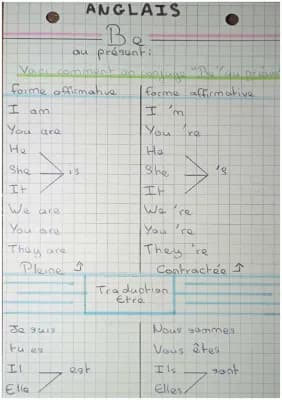 ANGLAIS
Be
au présent:
Voici comment on conjugue "Be" au présent
forme affirmative
I am
You are
He
She
It
is
We are
You are
They are
Pleine ↑
forme affirmative
I 'm
You 're
He
She
It
's
We 're
You 're
They 're
Contractée ↑
Traduction
Etre
Je suis
tu es
Il
Elle
est
Nous sommes
Vous êtes
Ils
Elles
sont